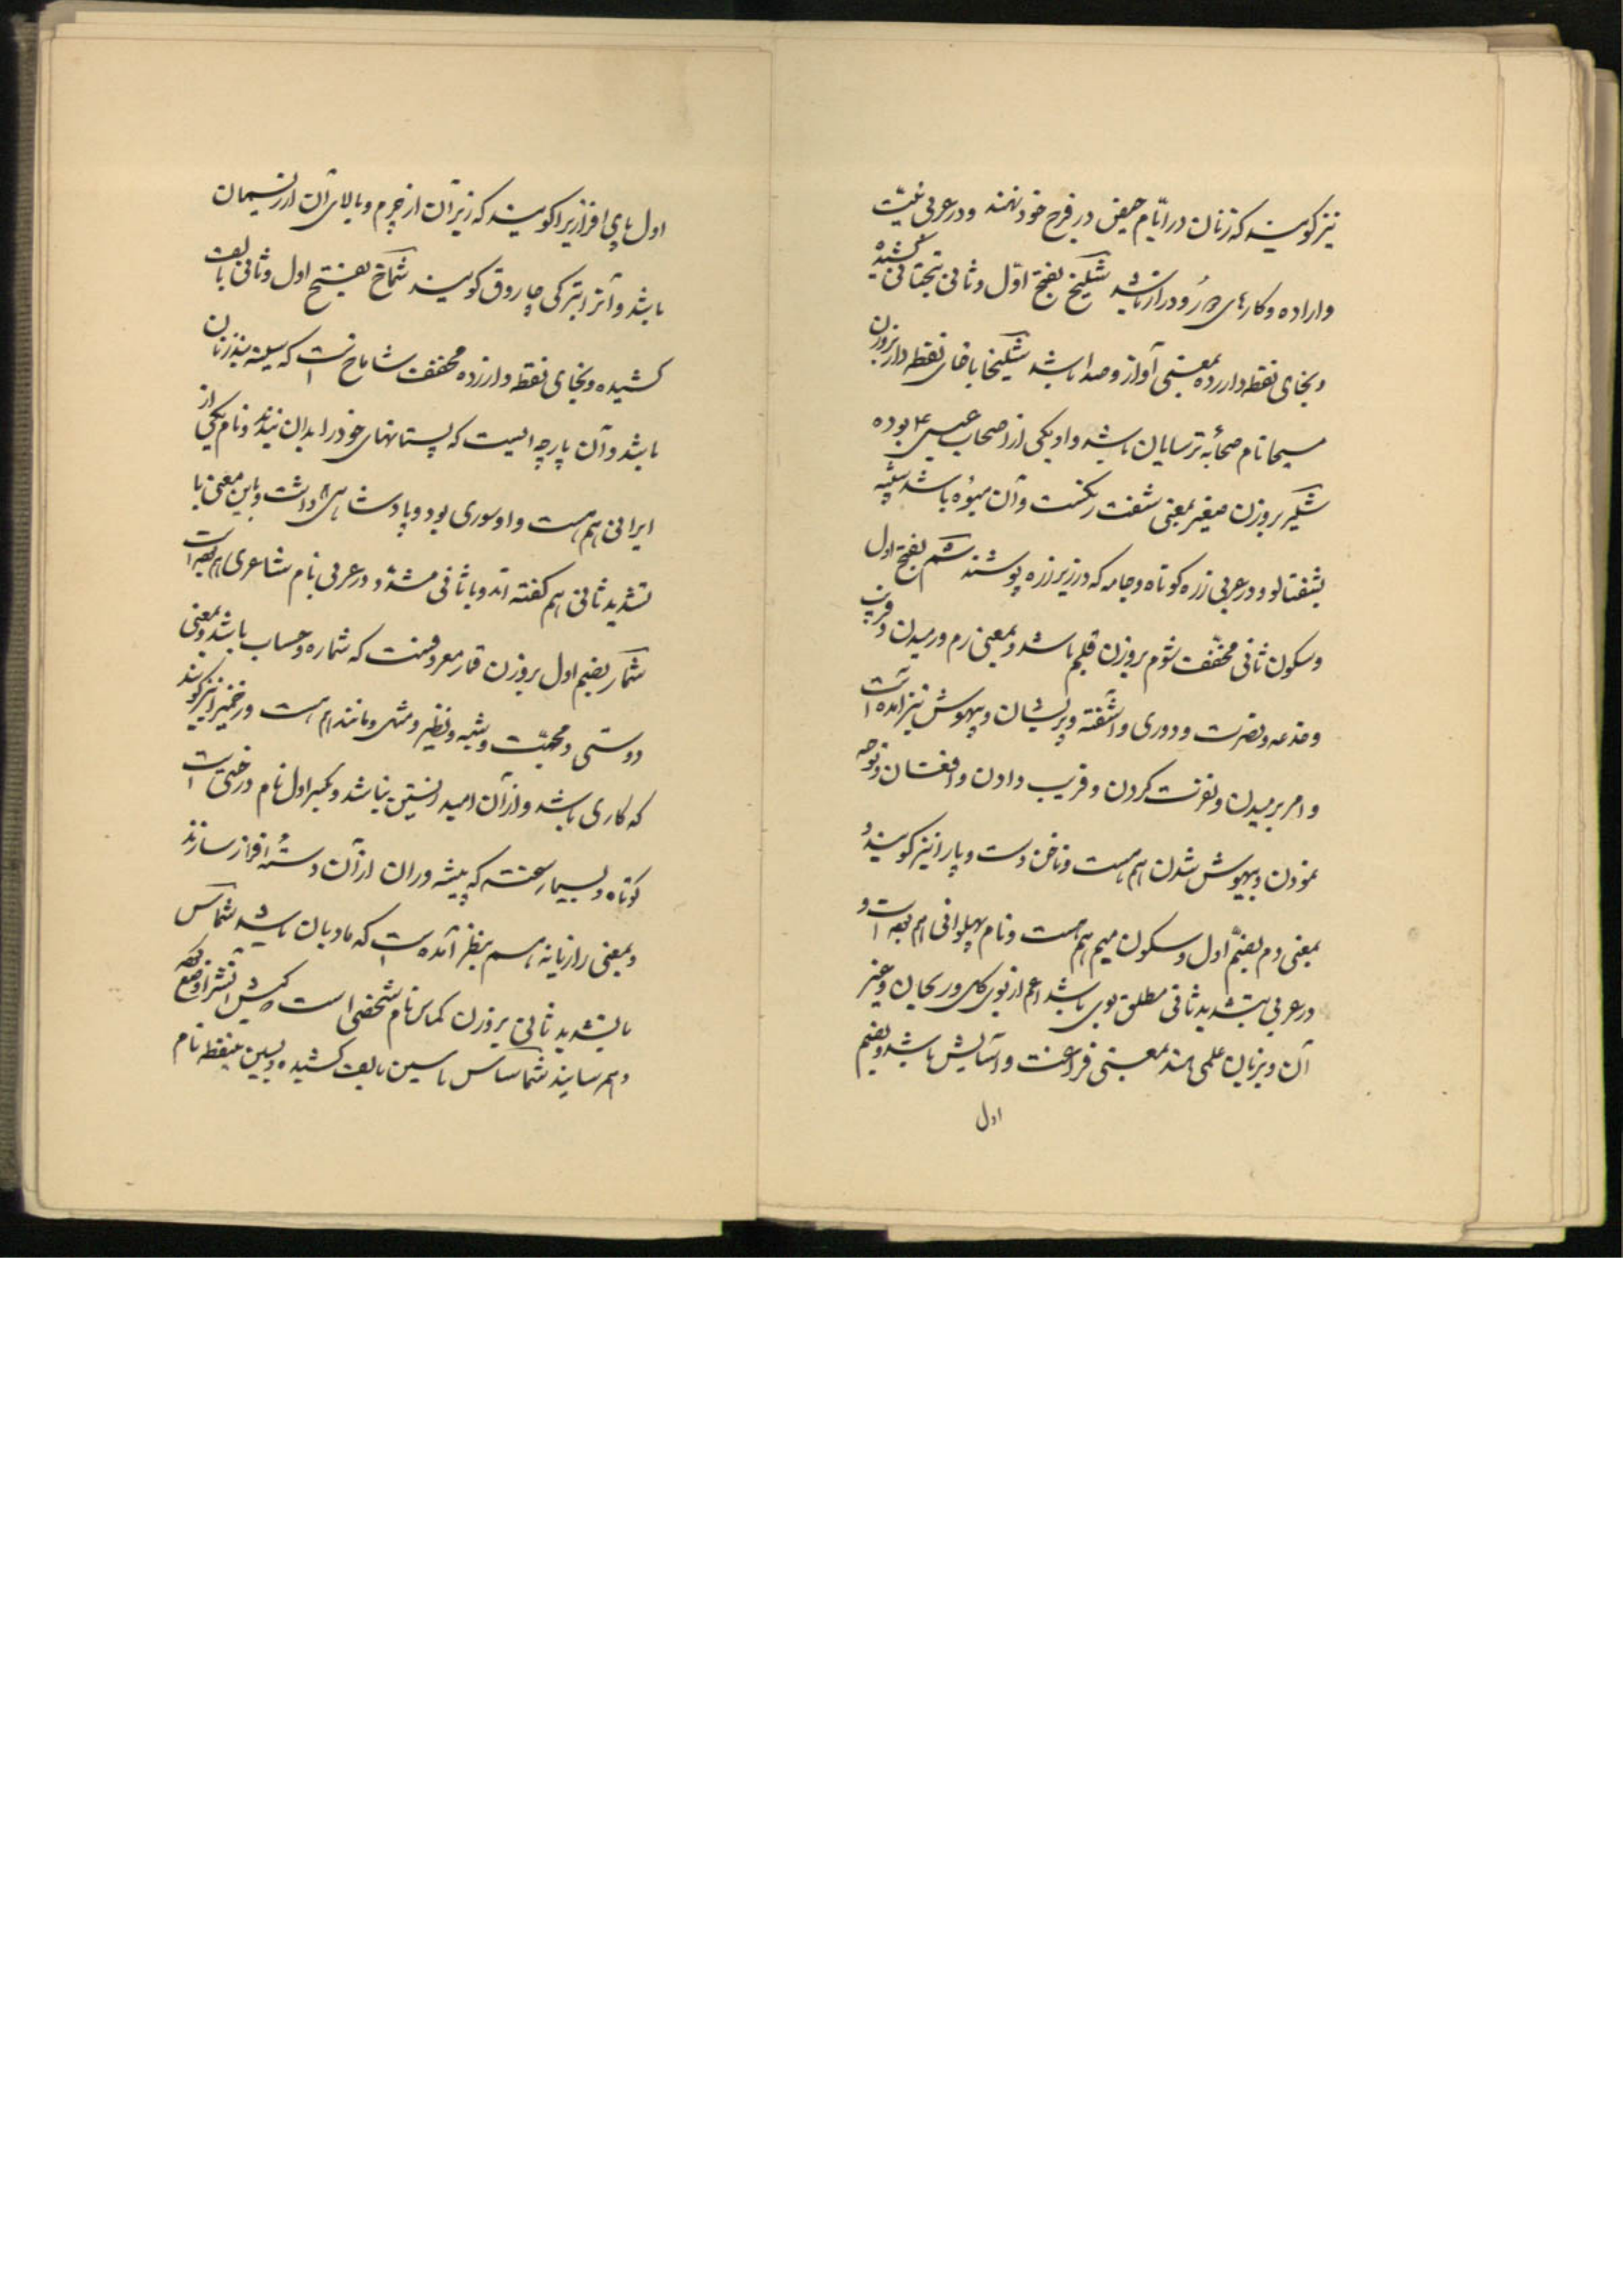 نیز گویند که زنان در ایّام حیض در فرج خود نهند و در عربی نیّت
و اراده و کارهای دُور و دراز باشد شلیخ بفتح اوّل و ثانی بتحتانی کشیده
و بخای نقطه دار زده بمعنی آواز و صدا باشد شلیخا با خای نقطه دار بروزن
مسیحا نام صحابهٔ ترسایان باشد و او یکی از اصحاب عیسی ع بوده
شلیر بروزن صغیر بمعنی شفت رنگست و آن میوه باشد شبیه
بشفتالو و در عربی زره کوتاه و جامه که در زیر زره پوشند شم بفتح اول
و سکون ثانی مخفّف شوم بروزن قلم باشد و بمعنی رم و رمیدن و فریب
و خدعه و نفرت و دوری و آشفته و پریشان و بیهوش نیز آمده است
و امر برمیدن و نفرت کردن و فریب دادن و افغان و نوحه
نمودن و بیهوش شدن هم هست و ناخن دست و پا را نیز گویند و
بمعنی دم بضمّ اول و سکون میم هم هست و نام پهلوانی هم بوده است و
در عربی بتشدید ثانی مطلق بوی باشد اعم از بوی گل و ریحان و غیر
آن و بزبان علمی هند بمعنی فراغت و آسایش باشد و بضم
اول
اول پای افزاریرا گویند که زیر آن از چرم و بالای آن از ریسمان
باشد و آنرا بترکی چاروق گویند شماخ بفتح اول و ثانی بالف
کشیده و بخای نقطه دار زده مخفف شاماخ است که سینه بند زنان
باشد و آن پارچه ایست که پستانهای خود را بدان بندند و نام یکی از
ایرانی هم هست و او سوری بود و پادشاهی داشت و باین معنی با
تشدید ثانی هم گفته اند و با ثانی مشدّد در عربی نام شاعری هم بوده است
شمار بضم اول بروزن قمار معروفست که شماره و حساب باشد و بمعنی
دوستی و محبّت و شبیه و نظیر و مثل و مانند هم هست و زخمیرا نیز گویند
که کاری باشد و از آن امید زیستن نباشد و بکسر اول نام درختی است
کوتاه و بسیار سخت که پیشه وران از آن دستهٔ افزار سازند
و بمعنی رازیانه هم بنظر آمده است که بادیان باشد شماس
با تشدید ثانی بروزن کماس نام شخصی است که کیش آتش را او وضع
و هم رسانید شماساس با سین بالف کشیده و بسین بینقطه نام